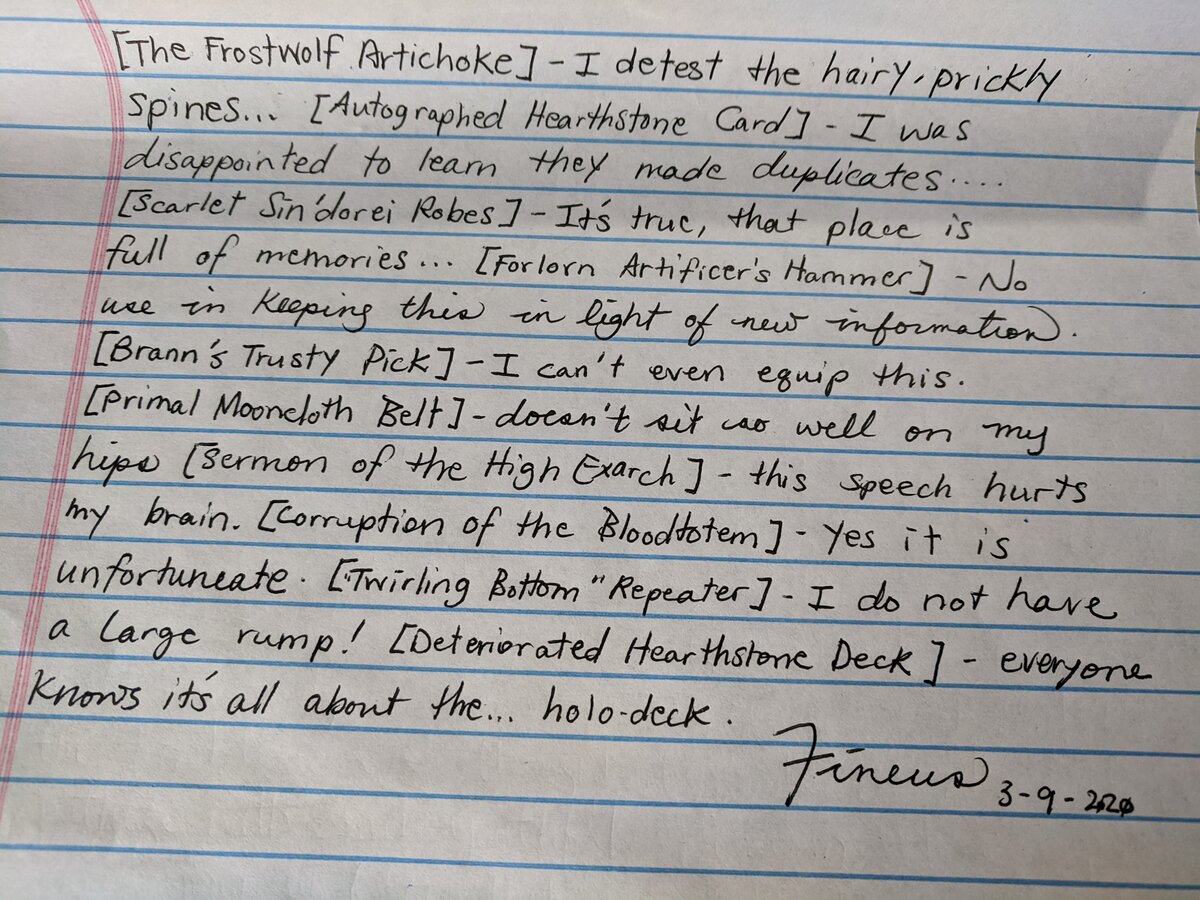 [The Frostwolf Artichoke] - I detest the hairy, prickly
spines... [Autographed Hearthstone Card] - I was
disappointed to learn they made duplicates....
[Scarlet Sin'dorei Robes] - It's true, that place is
full of memories... [Forlorn Artificer's Hammer] - No
use in keeping this in light of new information.
[Brann's Trusty Pick] - I can't even equip this.
[Primal Mooncloth Belt] - doesn't sit so well on my
hips [Sermon of the High Exarch] - this speech hurts
my brain. [Corruption of the Bloodtotem] - Yes it is
unfortuneate. ["Twirling Bottom" Repeater] - I do not have
a large rump! [Deteriorated Hearthstone Deck] - everyone
knows it's all about the... holo-deck.
Fineus 3-9-2020